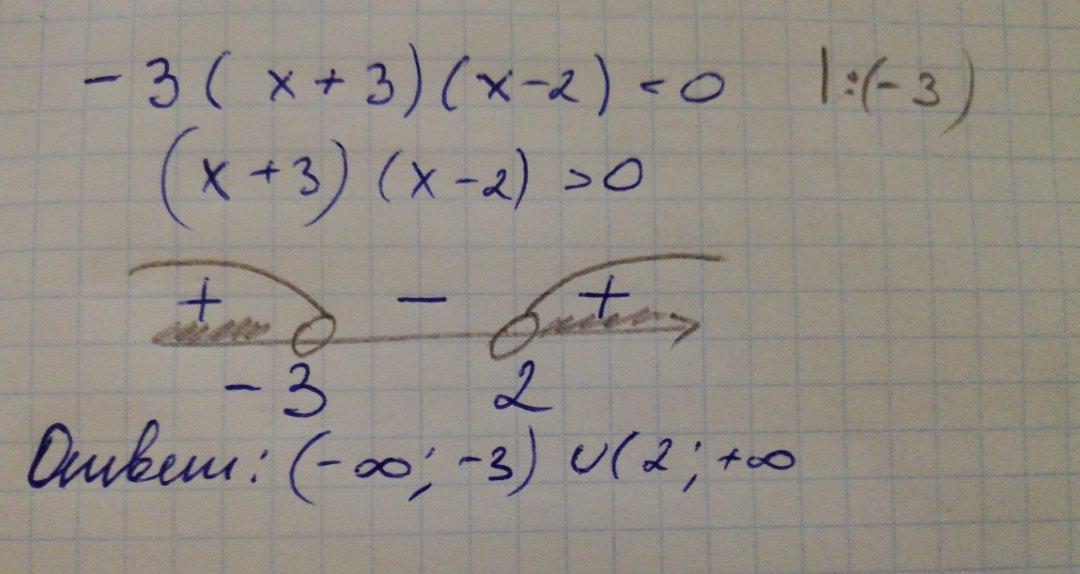 -3(x+3)(x-2)<0 |:(-3)
(x+3)(x-2)>0
+ - +
-3 2
Ответ: (-∞; -3) ∪(2; +∞